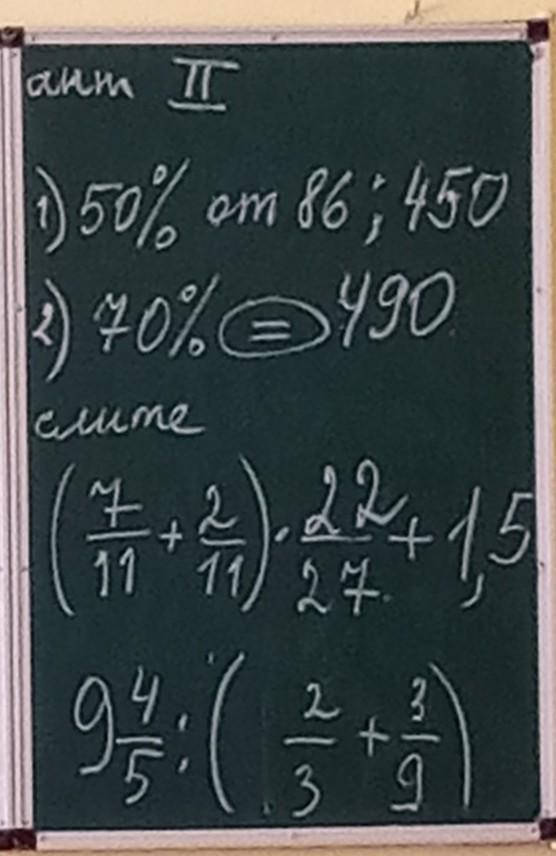 ант II
1) 50% от 86; 450
2) 70% = 490
слите
(7/11 + 2/11) · 22/27 + 1,5
9 4/5 : (2/3 + 3/9)